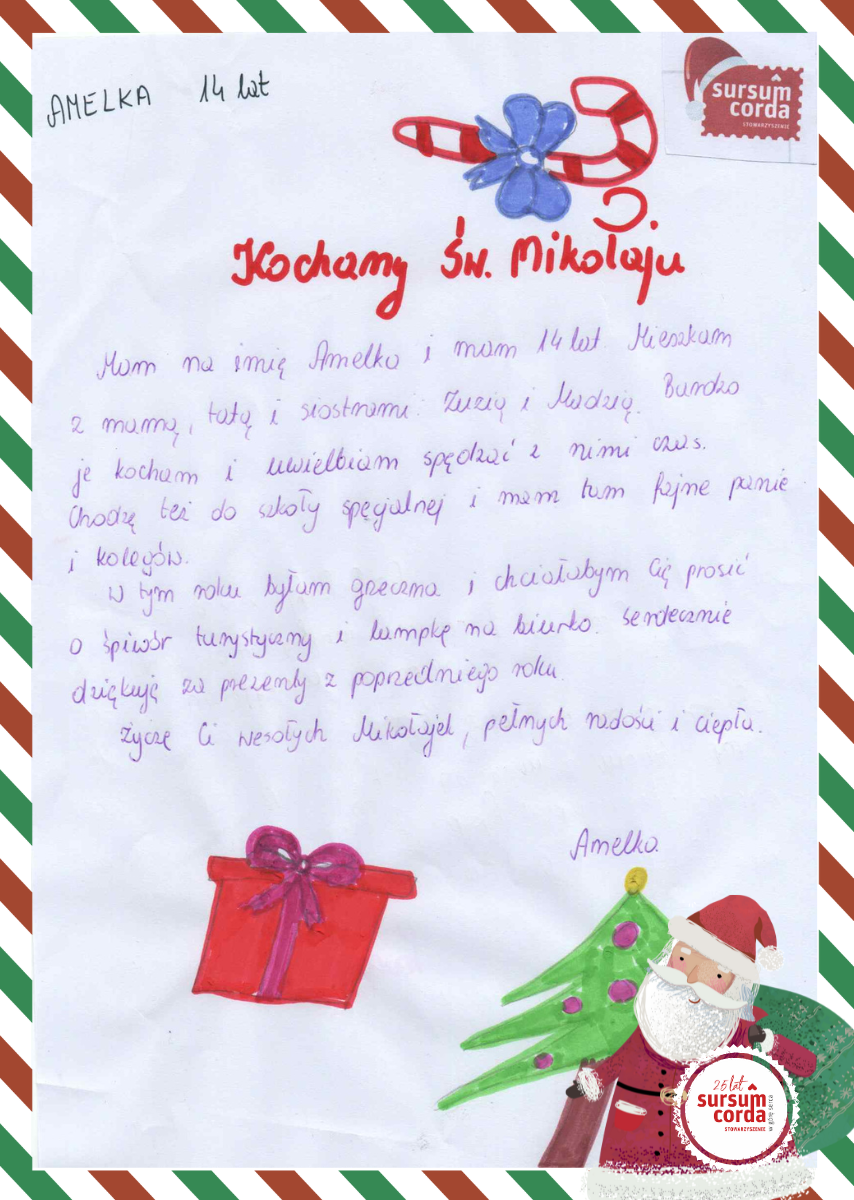 AMELKA 14 lat
sursum
corda
STOWARZYSZENIE
Kochany Św. Mikołaju
Mam na imię Amelka i mam 14 lat. Mieszkam
z mamą, tatą i siostrami: Zuzią i Madzią. Bardzo
je kocham i uwielbiam spędzać z nimi czas.
Chodzę też do szkoły specjalnej i mam tam fajne panie
i kolegów.
W tym roku byłam grzeczna i chciałabym Cię prosić
o śpiwór turystyczny i lampkę na biurko. Serdecznie
dziękuję za prezenty z poprzedniego roku.
Życzę Ci wesołych Mikołajek, pełnych radości i ciepła.
Amelka
26 lat
sursum
corda
STOWARZYSZENIE
w górę serca